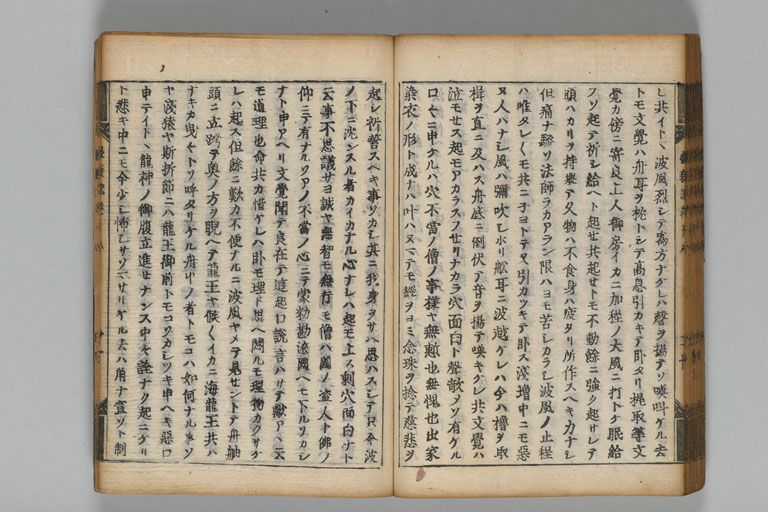 シ共イトヽ波風烈シテ為方ナケレハ聲ヲ揚テソ喚叫ケル去
トモ文覺ハ舟耳ヲ桃トシテ高息引カキテ卧タリ梶取等文
覺カ傍ニ寄良上人御房イカニ加程ノ大風ニ打トケ眠給
フソ起テ祈シ給ヘト起セ共起セトモ不動餘ニ強ク起サレテ
頭ハカリヲ持擧テ又物ハ不食身ハ疲タリ所作スヘキ力ナシ
但痛ナ騒ソ法師ラカアラン限ハヨモ苦シカラシ波風ノ止程
ハ唯タレ〱モ共ニ子ヨトテ又引カツキテ卧ス浅増中ニモ惡
ヌ人ハナシ風ハ彌吹シホリ舩耳ニ波越ケレハ今ハ櫓ヲ取
楫ヲ直ニ及ハス舟底ニ倒伏テ音ヲ揚テ喚キケレ共文覺ハ
泣モセス起モアカラスフセリナカラ穴面白ト聲歌メソ有ケル
口々ニ申ケルハ穴不當ノ僧ノ事樣ヤ無慙也無愧也出家
染衣ノ形ト成ナハ叶ハヌマテモ經ヲヨミ念珠ヲ捻テ慈悲ヲ
起シ祈誓スヘキ事ソカシ其ニ我身ヲサヘ思ハスシテ只今波
ノ下ニ沈ンスル者カイカナル心ナレハ起モ上ス剰穴面白ナト
云事不思議サヨ誠ヤ無智モ無行モ僧ハ國ノ盗人ト佛ノ
仰ニテ有ナルソアノ不當ノ心ニテ蒙勅勘遠國ヘモ下ルソカシ
ナト申アヘリ文覺聞テ良在テ這起口說言ハサテ歟アヽ云
モ道理也命共カ惜ケレハ卧モ理ト思ヘ閙ルモ理物カクサケ
レハ起ス但餘ニ歎カ不便ナルニ波風ヤメテ見セントテ舟舳
頭ニ立跨テ奥ノ方ヲ睨ヘテ龍王ヤ候〱イカニ海龍王共ハ
ナキカ曳ヤトソ呼タリケル舟中ノ者トモコハ如何ナル事ソ
ヤ浅猿ヤ斯折節ニハ龍王御前トモコソカシツキ申ヘキ惡口
申テイトヽ龍神ノ御腹立進セナンス中々詮ナク起ニケリ
ト悲キ中ニモ今少シ怖シサソマサリケル去ハ角ナ宣ソト制